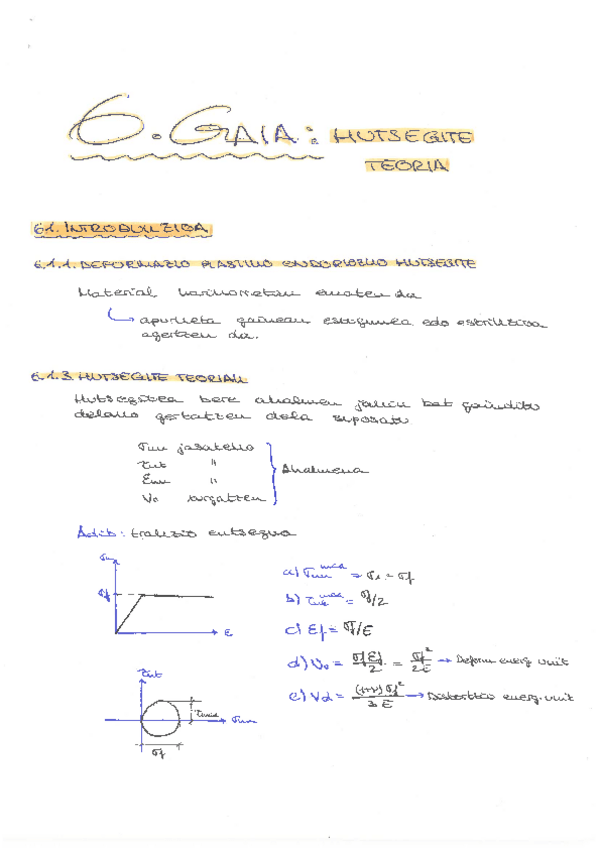 6. GAIA: HUTSEGITE
TEORIA
6.1. INTRODUKZIOA
6.1.1. DEFORMAZIO PLASTIKO ONDORIOZKO HUTSEGITE
Material harikorretan ematen da
apurketa gainean estugunea edo estrikzioa
agertzen da.
6.1.3 HUTSEGITE TEORIAK
Hutsegitea bere ahalmen jakin bat gainditu
delako gertatzen dela suposatu
σnn jasateko
τnt "
εnn "
U₀ xurgatzen
Ahalmena
Adib: trakzio entsegua
σn
σf
ε
a) σnn max = σ1 = σf
b) τnt max = σf/2
c) εf = σf/E
d) U₀ = σf εf / 2 = σf² / 2E → Deform energ unit
e) Ud = (1+ν)σf² / 3E → Distortsio energ. unit
τnt
τmax
σnn
σf